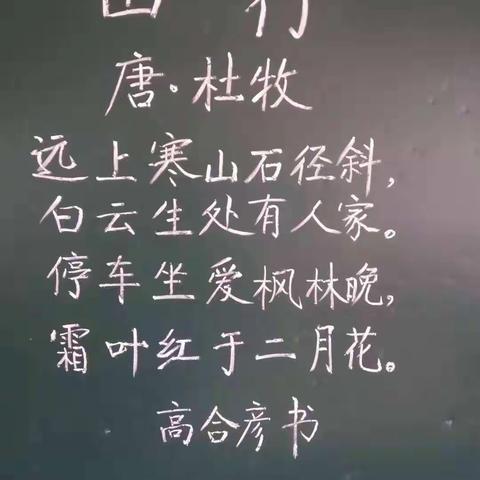 山行
唐·杜牧
远上寒山石径斜,
白云生处有人家。
停车坐爱枫林晚,
霜叶红于二月花。
高合彦书